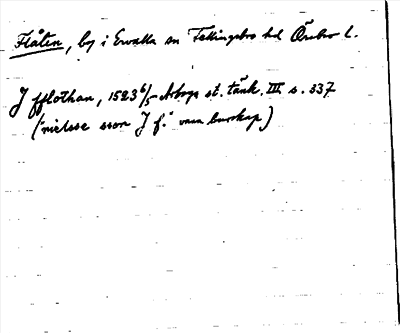 Flåten, by i Ervalla sn Fellingsbro hd Örebro l.
J fflothan, 1523 6/5 Arboga st. tänk. III s. 337
("nielsse som J f." vann burskap)